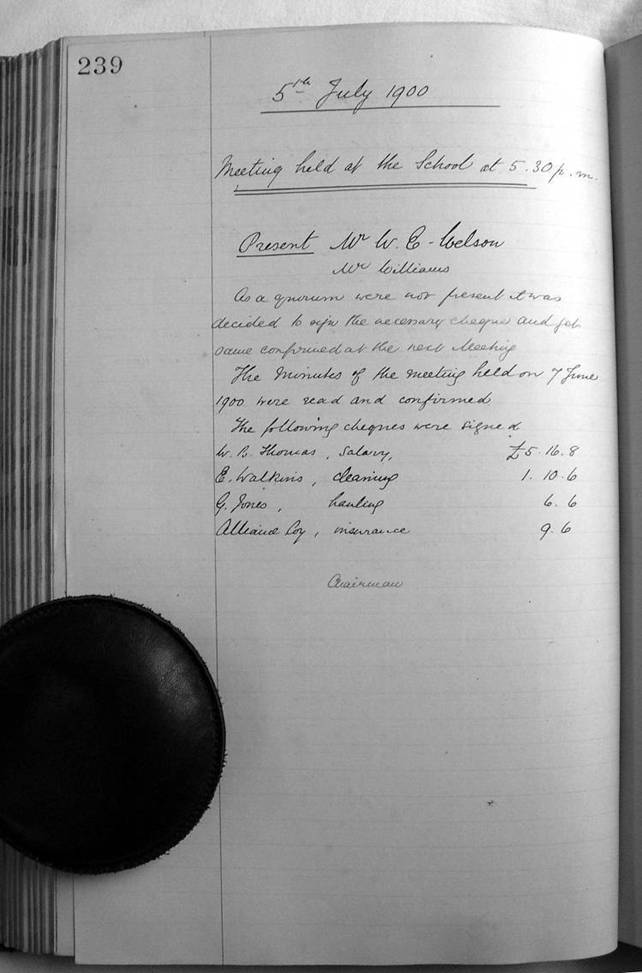 239
5th July 1900
Meeting held at the School at 5.30 p.m.
Present Mr W. E.
Mr Williams
As a quorum were not present it was
decided to sign the necessary cheques and get
same confirmed at the next Meeting
The Minutes of the meeting held on 7 June
1900 were read and confirmed
The following cheques were signed
Thomas, Salary, £5.16.8
E. Watkins, cleaning 1.10.6
G. Jones, hauling 6.6
Alliance Coy, insurance 9.6
Chairman